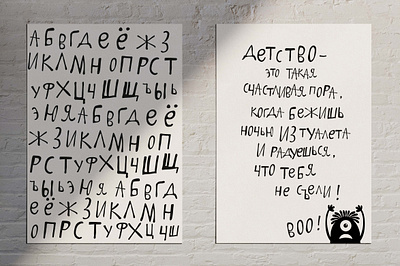 АБВГДеё ЖЗ
ИКЛМНОПРСТ
УФХЦЧШЩЪЫЬ
ЭЮЯАБВГДеё
ЖЗИКЛМН ОП
РСТУФХЦЧШЩ
ЪЫЬЭЮЯАБВГД
еёЖЗИКЛМН
ОПРСТУФХЦЧШ
ДеТСТВО –
ЭТО ТАКАЯ
СЧАСТЛИВАЯ ПОРА,
КОГДА БеЖИШЬ
НОЧЬЮ ИЗ ТУАЛеТА
И РАДУеШЬСЯ,
ЧТО ТеБЯ
Не СЪеЛИ!
BOO!